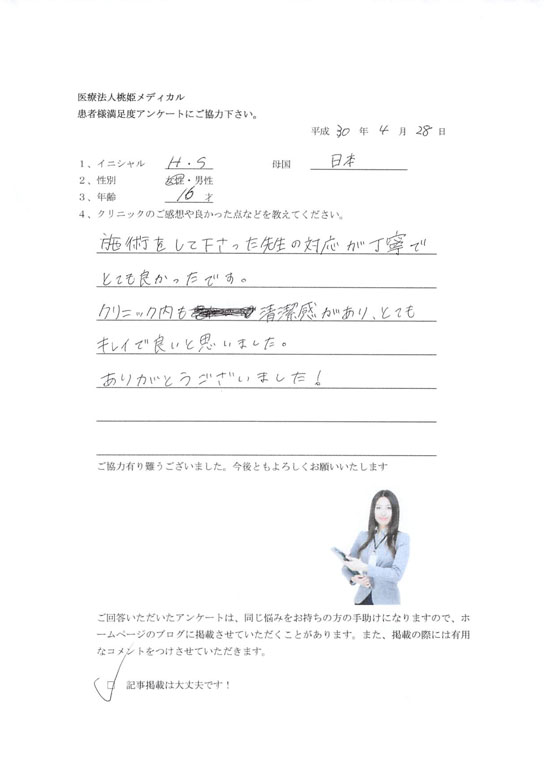 医療法人桃姫メディカル
患者様満足度アンケートにご協力下さい。
平成 30 年 4 月 28 日
1、イニシャル H・S 母国 日本
2、性別 女性・男性
3、年齢 16 才
4、クリニックのご感想や良かった点などを教えてください。
施術をして下さった先生の対応が丁寧で
とても良かったです。
クリニック内も 清潔感があり、とても
キレイで良いと思いました。
ありがとうございました!
ご協力有り難うございました。今後ともよろしくお願いいたします
ご回答いただいたアンケートは、同じ悩みをお持ちの方の手助けになりますので、ホ
ームページのブログに掲載させていただくことがあります。また、掲載の際には有用
なコメントをつけさせていただきます。
□ 記事掲載は大丈夫です!